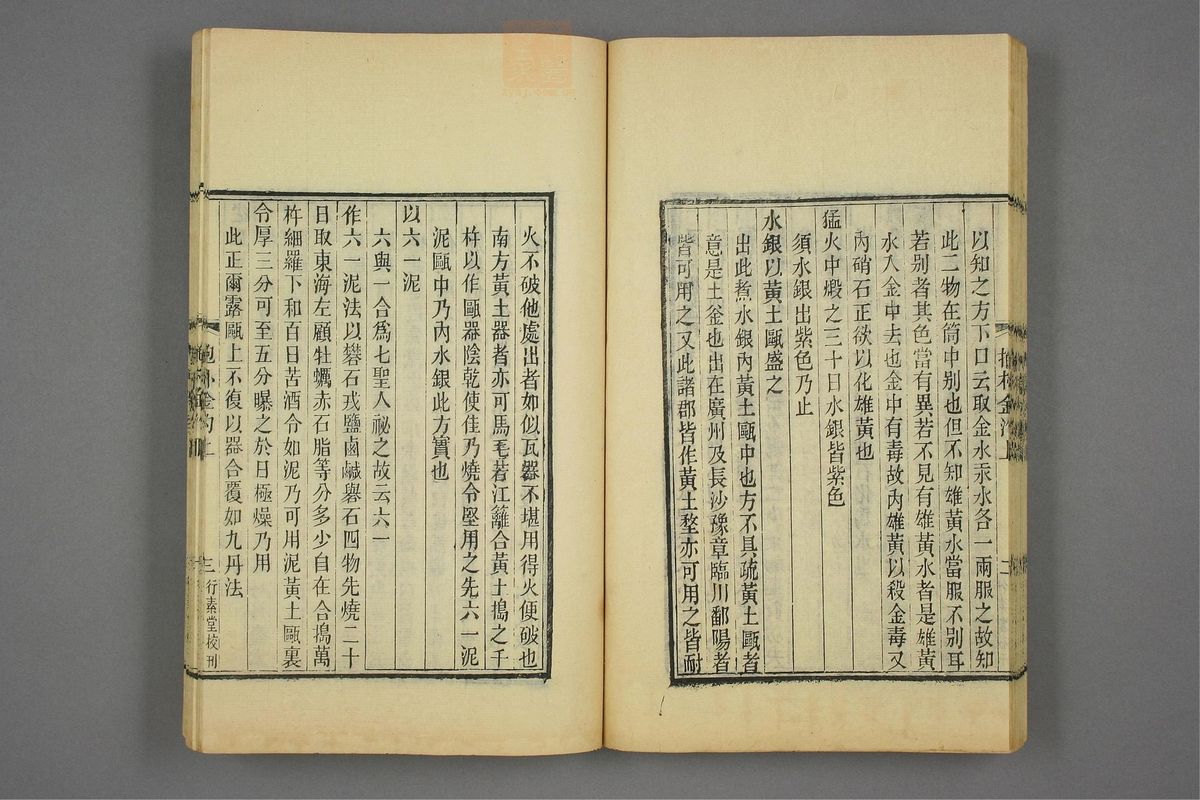 以知之方下口云取金水汞水各一兩服之故知
此二物在筒中别也但不知雄黃水當服不别耳
若别者其色當有異若不見有雄黃水者是雄黃
水入金中去也金中有毒故內雄黃以殺金毒又
內硝石正欲以化雄黃也
猛火中煅之三十日水銀皆紫色
須水銀出紫色乃止
水銀以黃土甌盛之
出此煮水銀內黃土甌中也方不具疏黃土甌者
意是土釜也出在廣州及長沙豫章臨川鄱陽者
皆可用之又此諸郡皆作黃土堥亦可用之皆耐
二
火不破他處出者如似瓦器不堪用得火便破也
南方黃土器者亦可馬毛若江籬合黃土搗之千
杵以作甌器陰乾使佳乃燒令堅用之先六一泥
泥甌中乃內水銀此方實也
以六一泥
六與一合爲七聖人祕之故云六一
作六一泥法以礬石戎鹽鹵鹹礜石四物先燒二十
日取東海左顧牡蠣赤石脂等分多少自在合搗萬
杵細羅下和百日苦酒令如泥乃可用泥黃土甌裏
令厚三分可至五分曝之於日極燥乃用
此正爾露甌上不復以器合覆如九丹法
三
行素堂校刊